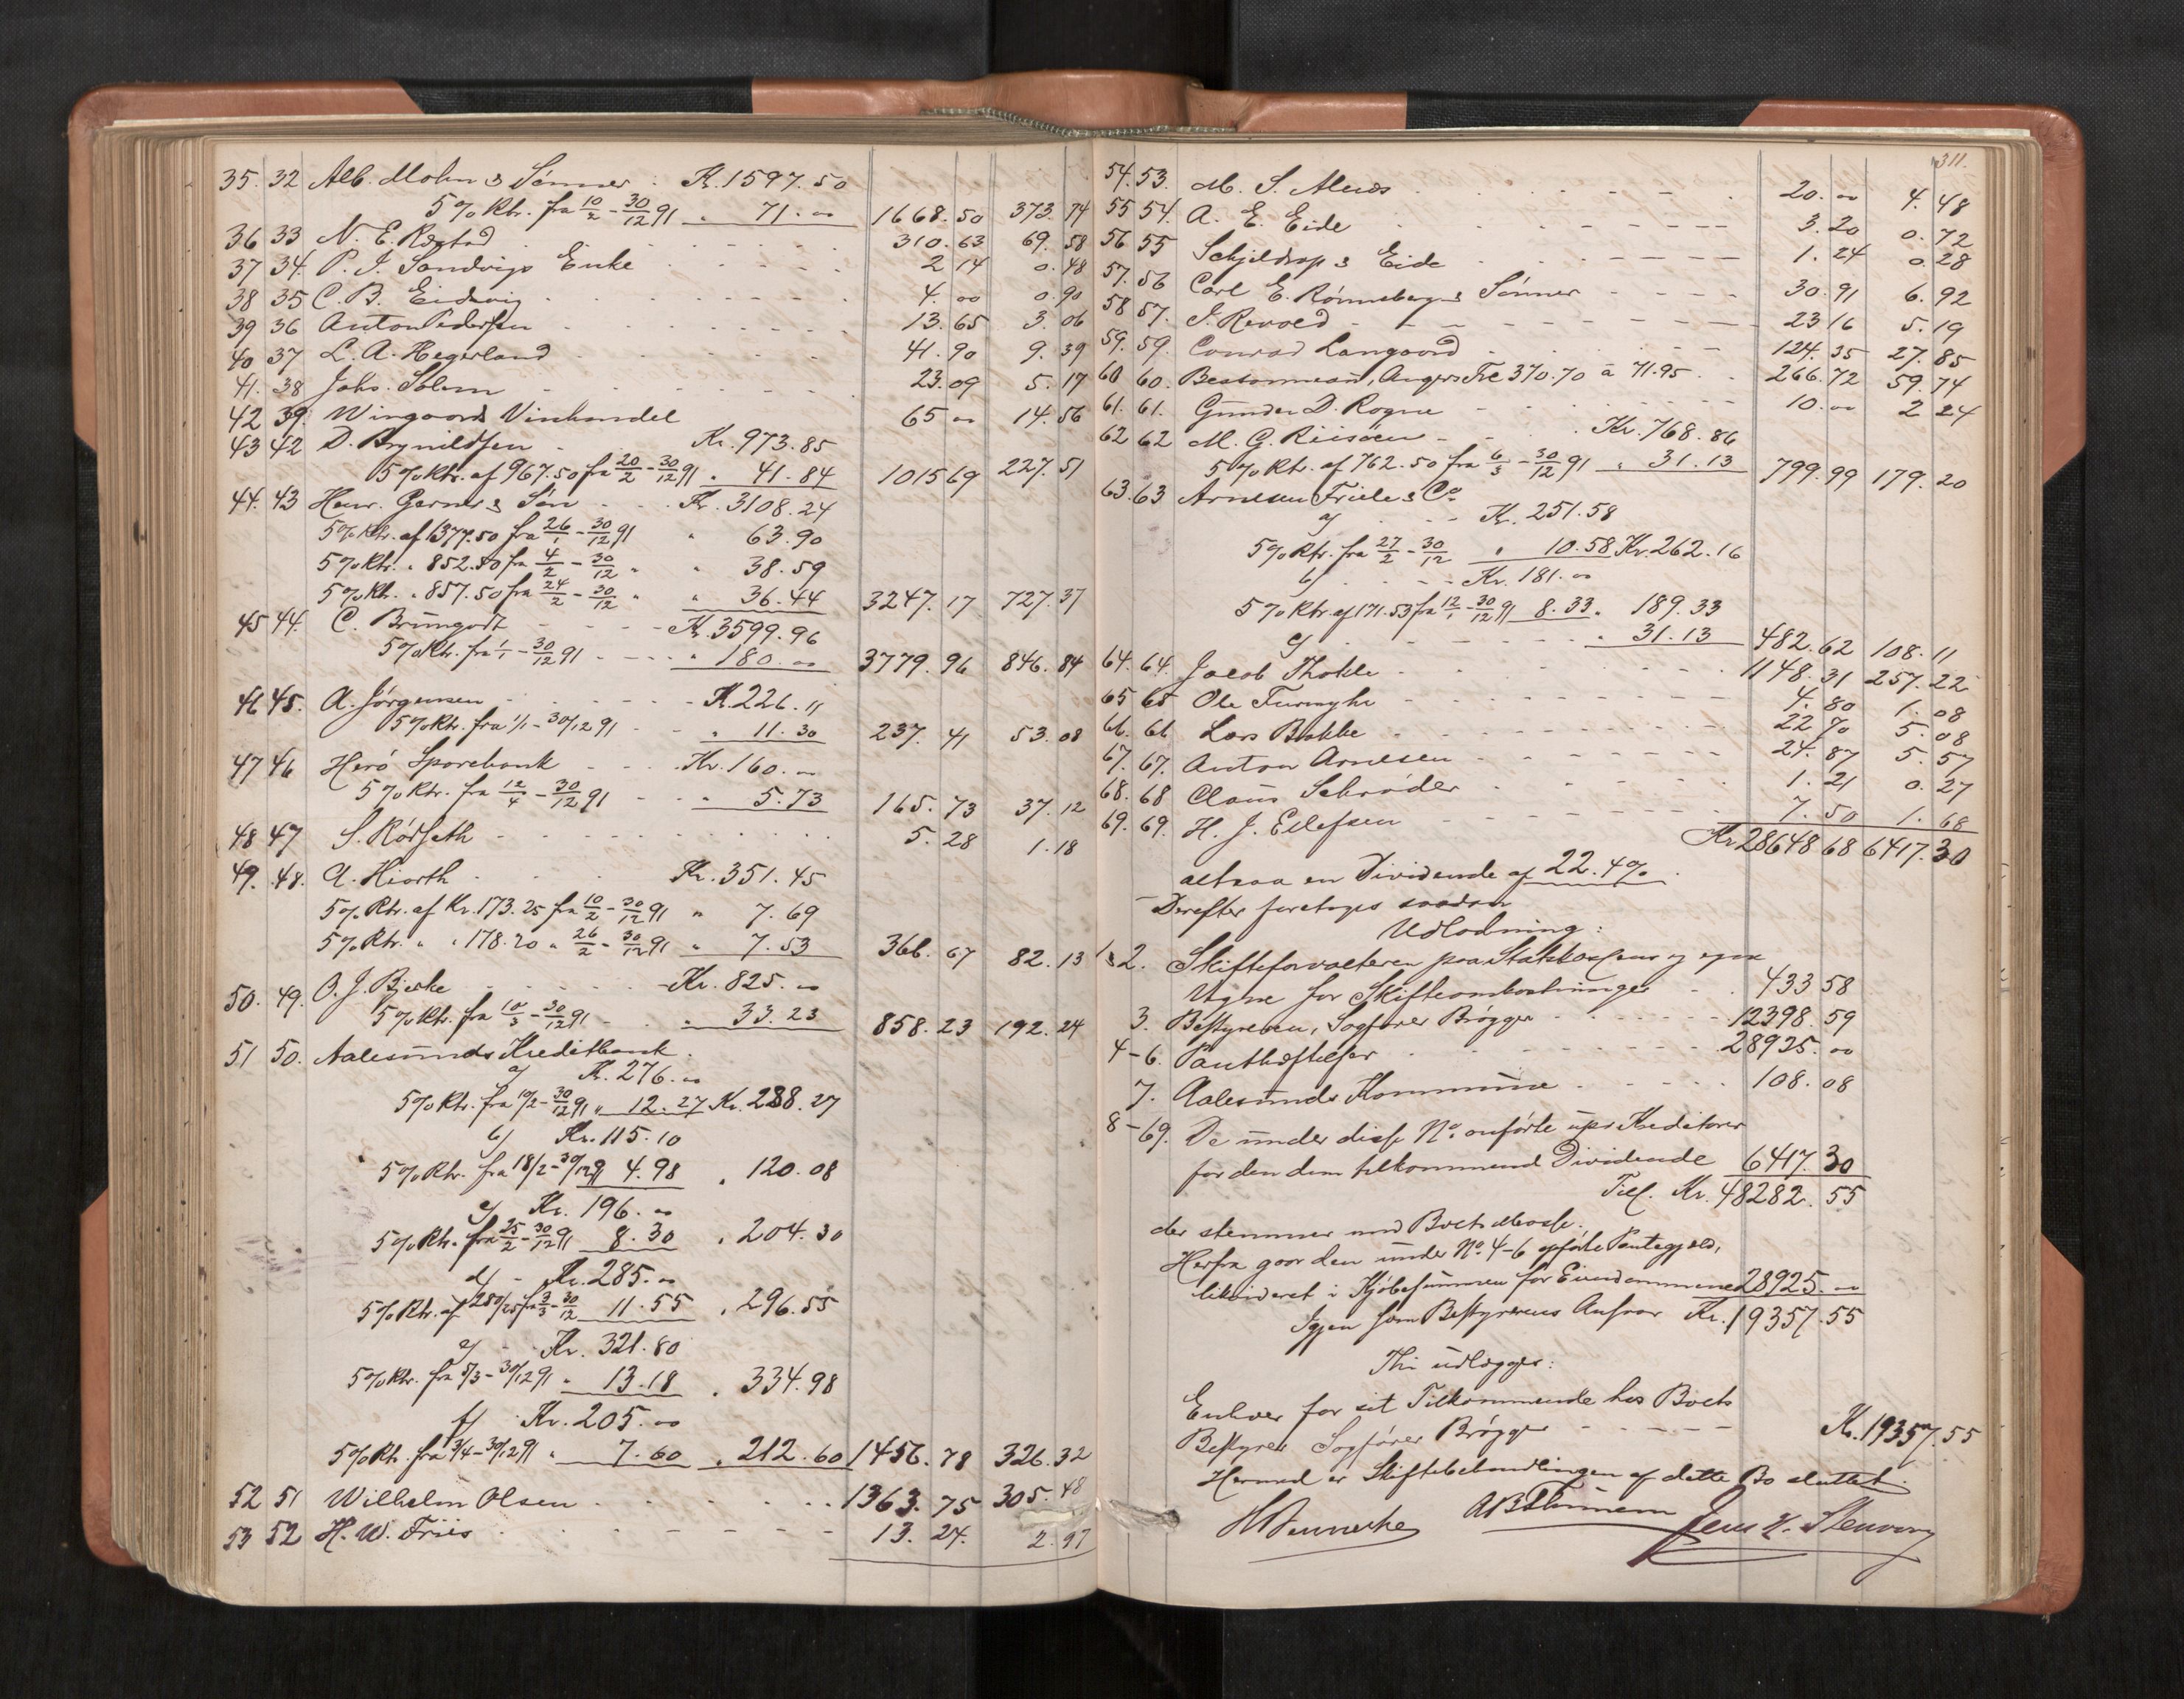 35. 32 Alb. Mohn & Sønner . Kr. 1597.50
5% Rtr. fra 10/2 - 30/12 91 „ 71.00 1668.50 373.74
36 33 N. E. Røstad . . . . . 310.63 69.58
37 34. P. I. Sandvigs Enke . . . . . 2 14 0.48
38 35 C. B. Eidsvig . . . . . 4.00 0.90
39 36 Anton Pedersen . . . . . 13.65 3.06
40 37 L. A. Hegerland . . . . . 41.90 9.39
41. 38 Johs. Solem - - - - - 23.09 5.17
42 39. Wingaards Vinhandel 65 00 14.56
43 42 D. Brynildsen . Kr. 973.85
5% Rtr. af 967.50 fra 20/2 - 30/12 91 „ 41.84 1015 69 227.51
44. 43 Henr. Gerner & Søn . . Kr. 3108.24
5% Rtr. af 1377.50 fra 26/1 - 30/12 91 „ 63.90
5% Rtr. „ 852.50 fra 4/2 - 30/12 „ „ 38.59
5% Rtr. „ 857.50 fra 24/2 - 30/12 „ „ 36.44 3247.17 727.37
45 44. C. Brungodt - - - - Kr. 3599.96
5% Rtr. fra 1/1 - 30/12 91 - - - „ 180.00 3779.96 846.84
46 45. A. Jørgensen - - - - Kr. 226.11
5% Rtr. fra 1/1 - 30/12 91 - - „ 11.30 237.41 53.08
47 46 Herø Sparebank - - - Kr. 160.00
5% Rtr. fra 12/4 - 30/12 91 - - „ 5.73 165.73 37.12
48 47 S. Rødseth - - - - - 5.28 1.18
49. 48. A. Hiorth . . . Kr. 351.45
5% Rtr. af Kr. 173.25 fra 10/2 - 30/12 91 „ 7.69
5% Rtr. „ „ 178.20 „ 26/2 - 30/12 91 „ 7.53 366.67 82.13
50. 49. O. J. Bjerke - - - - - Kr. 825.00
5% Rtr. fra 10/3 - 30/12 91 - . „ 33.23 858.23 192.24
51 50. Aalesunds Kreditbank.
a) Kr. 276.00
5% Rtr. fra 10/2 - 30/12 91 „ 12.27 Kr. 288.27
b) Kr. 115.10
5% Rtr. fra 18/2 - 30/12 91 4.98 „ 120.08
c) Kr. 196.00
5% Rtr. fra 25/2 - 30/12 91 8.30 „ 204.30
d) - Kr. 285.00
5% Rtr. af fra 3/3 - 30/12 11.55 „ 296.55
e) - Kr. 321.80
5% Rtr. fra 5/3 - 30/12 91 „ 13.18 „ 334.98
f) Kr. 205.00
5% Rtr. fra 3/4 - 30/12 91 „ 7.60 „ 212.60 1456.78 326.32
52 51 Wilhelm Olsen . . . . . 1363.75 305.48
53 52 H. W. Friis . - - - - 13.24. 2.97
311.
54. 53. M. S. . . . - - 20.00 4.48
55 54. A. E. Eide . . . - - - 3.20 0.72
56 55 Schjeldrop & Eide - - - - 1.24 0.28
57. 56 Carl E. Rønneberg & Sønner - - - 30.91 6.92
58 57. J. Revold - - - - - 23 16 5.19
59. 59. Conrad Langaard . . . - - 124.35 27.85
60 60. Angers Frc 370.70 a 71.95 . . 266.72 59.74
61. 61. Gunder D. Rogne - - - - - 10.00 2 24
62 62 M. G. Riisøen - - - Kr. 768.86
5% Rtr. af 762.50 fra 6/3 - 30/12 91 „ 31.13 799.99 179.20
63. 63 Arnesen Friele & Co
a) - - Kr. 251.58
5% Rtr. fra 27/2 - 30/12 „ 10.58 Kr. 262.16
b) - - Kr. 181.00
5% Rtr. af 171.53 fra 12/1 - 30/12 91 8.33 „ 189.33
c) - - - - - „ 31.13 482.62 108.11
64. 64. Jacob Tholde - - - - 1148.31 257.22
65 65 Ole Furmyhr - - - - 4.80 1.08
66. 66 Lars Bakke - - - - 22 70 5.08
67. 67. Anton Arnesen - - - - 24.87 5.57
68. 68 Claus Schrøder - - - - 1.21 0.27
69. 69. H. J. Ellefsen - - - - 7.50 1.68
Kr. 28648 68 6417.30
altsaa en Dividende af 22.4% .
Derefter foretoges saadan
Udlodning:
1 & 2. Skifteforvalteren paa Statskassens og egne
Vegne for Skifteomkostninger - - 433 58
3. Bestyreren, Sagfører Brøgger - - - - 12398.59
4-6. Panthæftelser - - - - - 28925.00
7. Aalesunds Kommune - - - - 108.08
8-69. De under disse No. anførte upr. Kreditorer
for den dem tilkommende Dividende 6417.30
Till. Kr. 48282.55
der stemmer med Boets Masse.
Herfra gaar den under No. 4-6 opførte Pantegjæld,
likvideret i Kjøbesummen for Eiendommene 28925.00
Igjen som Bestyrerens Ansvar Kr. 19357.55
Thi udlægges:
Enhver for sit Tilkommende hos Boets
Bestyrer Sagfører Brøgger - - - - - Kr. 19357.55
Hermed er Skiftebehandlingen af dette Bo sluttet.